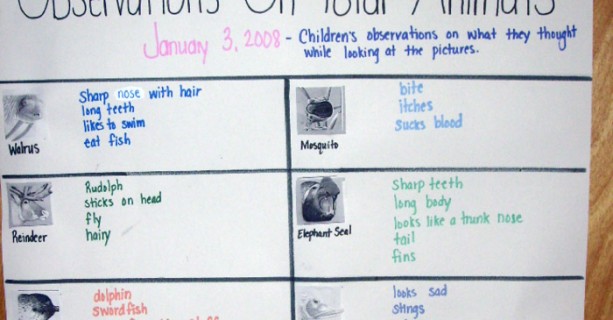 Observations On Polar Animals
January 3, 2008 - Children's observations on what they thought
while looking at the pictures.
Walrus
Sharp nose with hair
long teeth
likes to swim
eat fish
Mosquito
bite
itches
Sucks blood
Reindeer
Rudolph
sticks on head
fly
hairy
Elephant Seal
Sharp teeth
long body
looks like a trunk nose
tail
fins
dolphin
swordfish
looks sad
stings